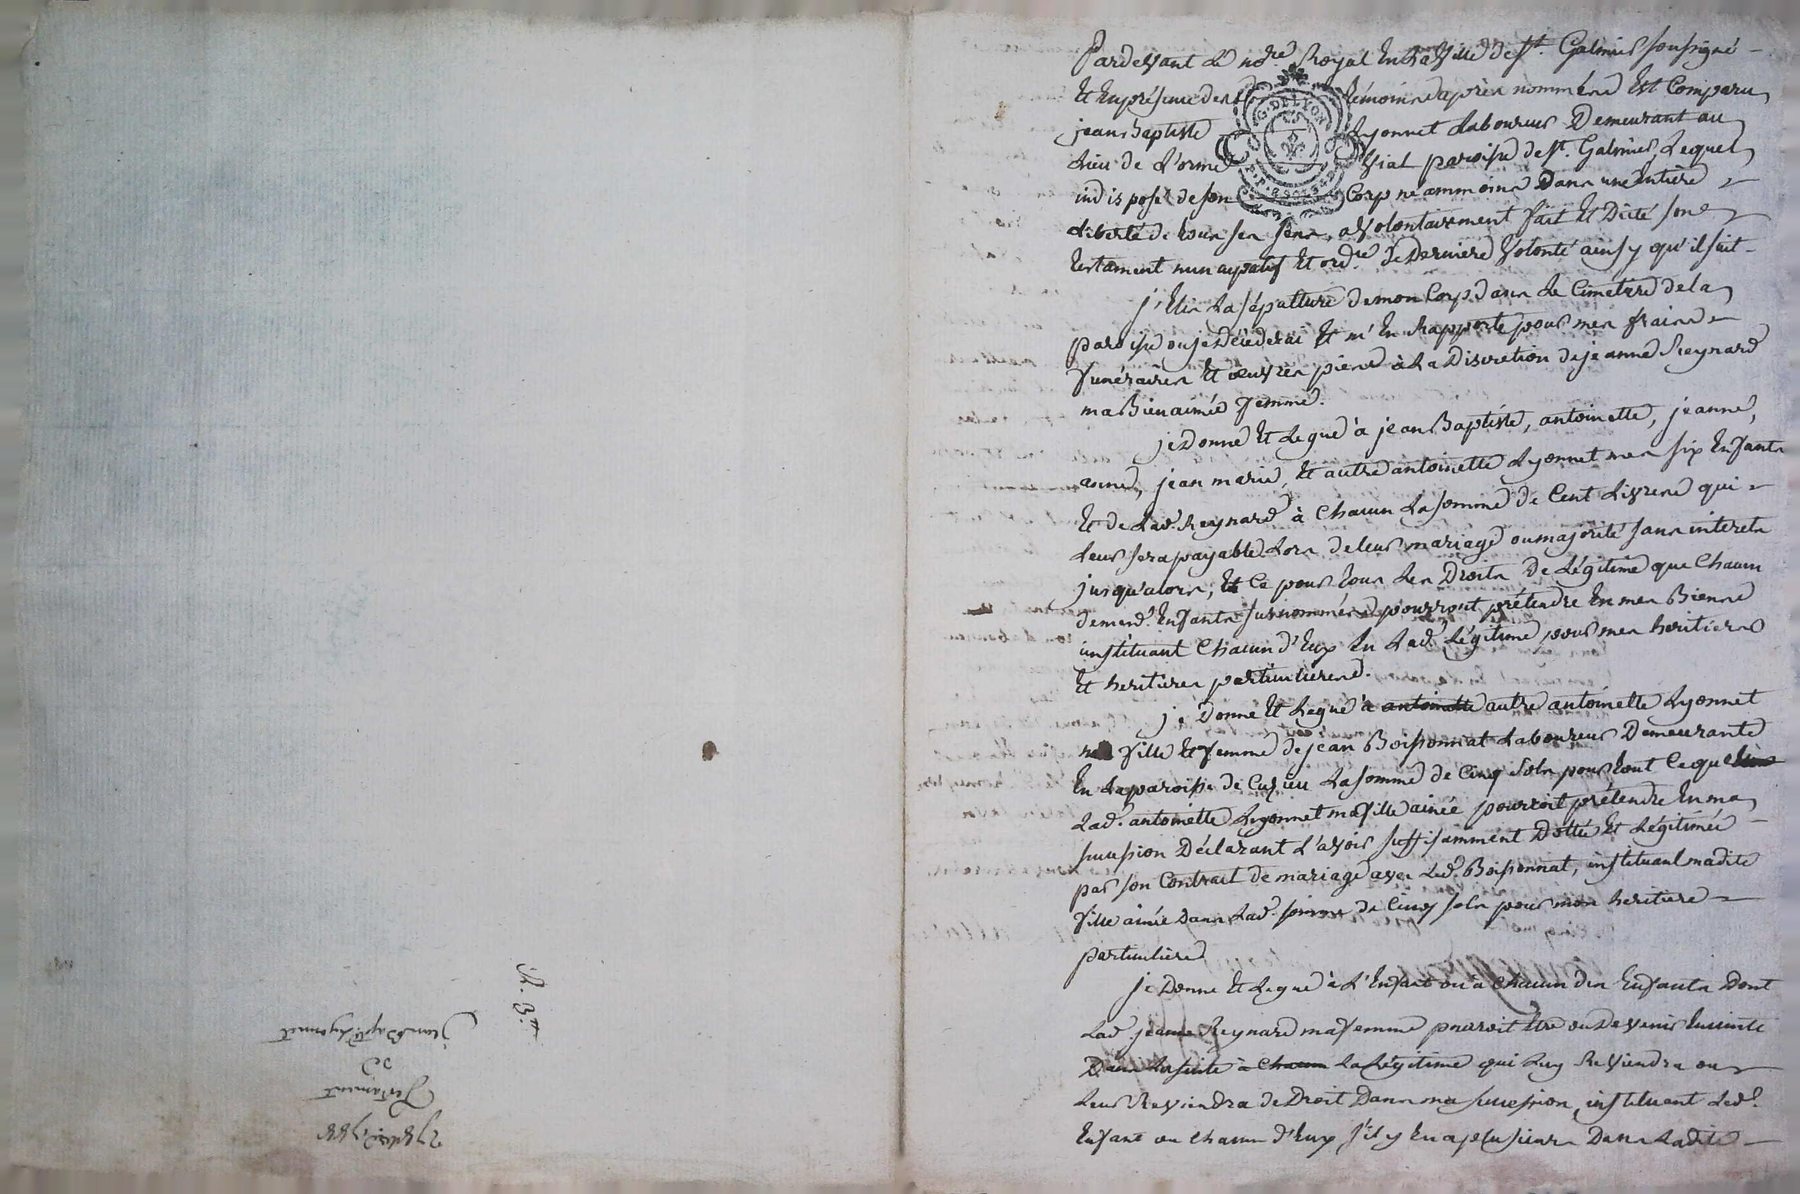 Pardevant Le no.re Royal En La Ville de St. Galmier soussigné
Et En présence des témoins après nommés Est Comparu
jean Baptiste Lyonnet Laboureur Demeurant au
Lieu de L'orme Vial paroisse de St. Galmier, Lequel
indisposé de son Corps néammoins Dans une Entière
Liberté de tous ses sens, a Volontairement fait Et Dicté son
testament nuncupatif Et ord.re de Dernière Volonté ainsy qu'il suit
j'Elis La sépulture de mon Corps dans Le Cimetière de la
paroisse ou je Décéderai Et m'En Rapporte pour mes frais
funéraires Et œuvres pies à La Discretion de jeanne Reynard
ma Bien aimée femme.
je Donne Et Legue à jean Baptiste, antoinette, jeanne,
anne, jean marie, Et autre antoinette Lyonnet mes six Enfants
Et de Lad. Reynard à Chacun La somme de Cent Livres qui
Leur sera payable Lors de leur mariage ou majorité sans interets
jusqu'alors, Et Ce pour tous Les Droits De Légitime que Chacun
de mesd. Enfants susnommés pourront prétendre En mes Biens
instituant Chacun d'Eux En Lad. Légitime pour mes heritiers
Et heritieres particulieres.
je Donne Et Legue à antoinette autre antoinette Lyonnet
ma fille Et femme de jean Boissonnat Laboureur Demeurante
En La paroisse de Cuzieu La somme de Cinq Sols pour tout Ce que
Lad. antoinette Lyonnet ma fille ainée pourroit prétendre En ma
succession Déclarant L'avoir suffisamment Dottée Et Légitimée
par son Contrait de mariage avec Led. Boissonnat, instituant madite
fille ainée Dans Lad. somme de Cinq sols pour mon heritiere
particuliere
je Donne Et Legue à L'Enfant ou à Chacun des Enfants Dont
Lad. jeanne Reynard ma femme pourroit Etre ou Devenir Enceinte
Dans La suite à Chacun La Légitime qui Luy Reviendra ou
Leur Reviendra de Droit Dans ma succession, instituant Led.
Enfant ou Chacun d'Eux s'il y En a plusieurs Dans Ladite
G. DE LYON
1788
Testament
de
Jean Bapt. Lyonnet